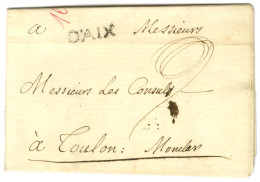 a Messieurs
D'AIX
Messieurs Les Consuls
à Toulon: